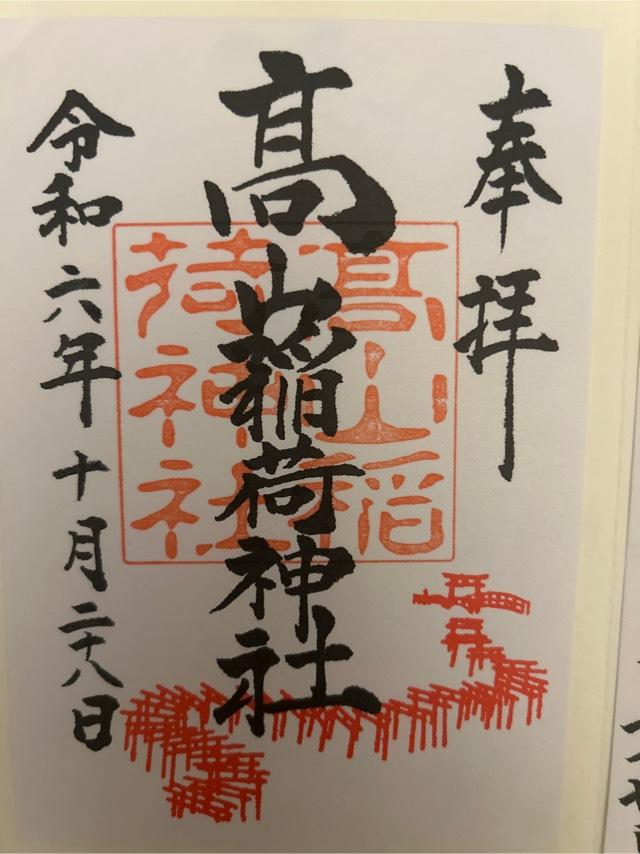 奉拝
髙山稲荷神社
髙山稲
荷神社
令和六年十月二十八日